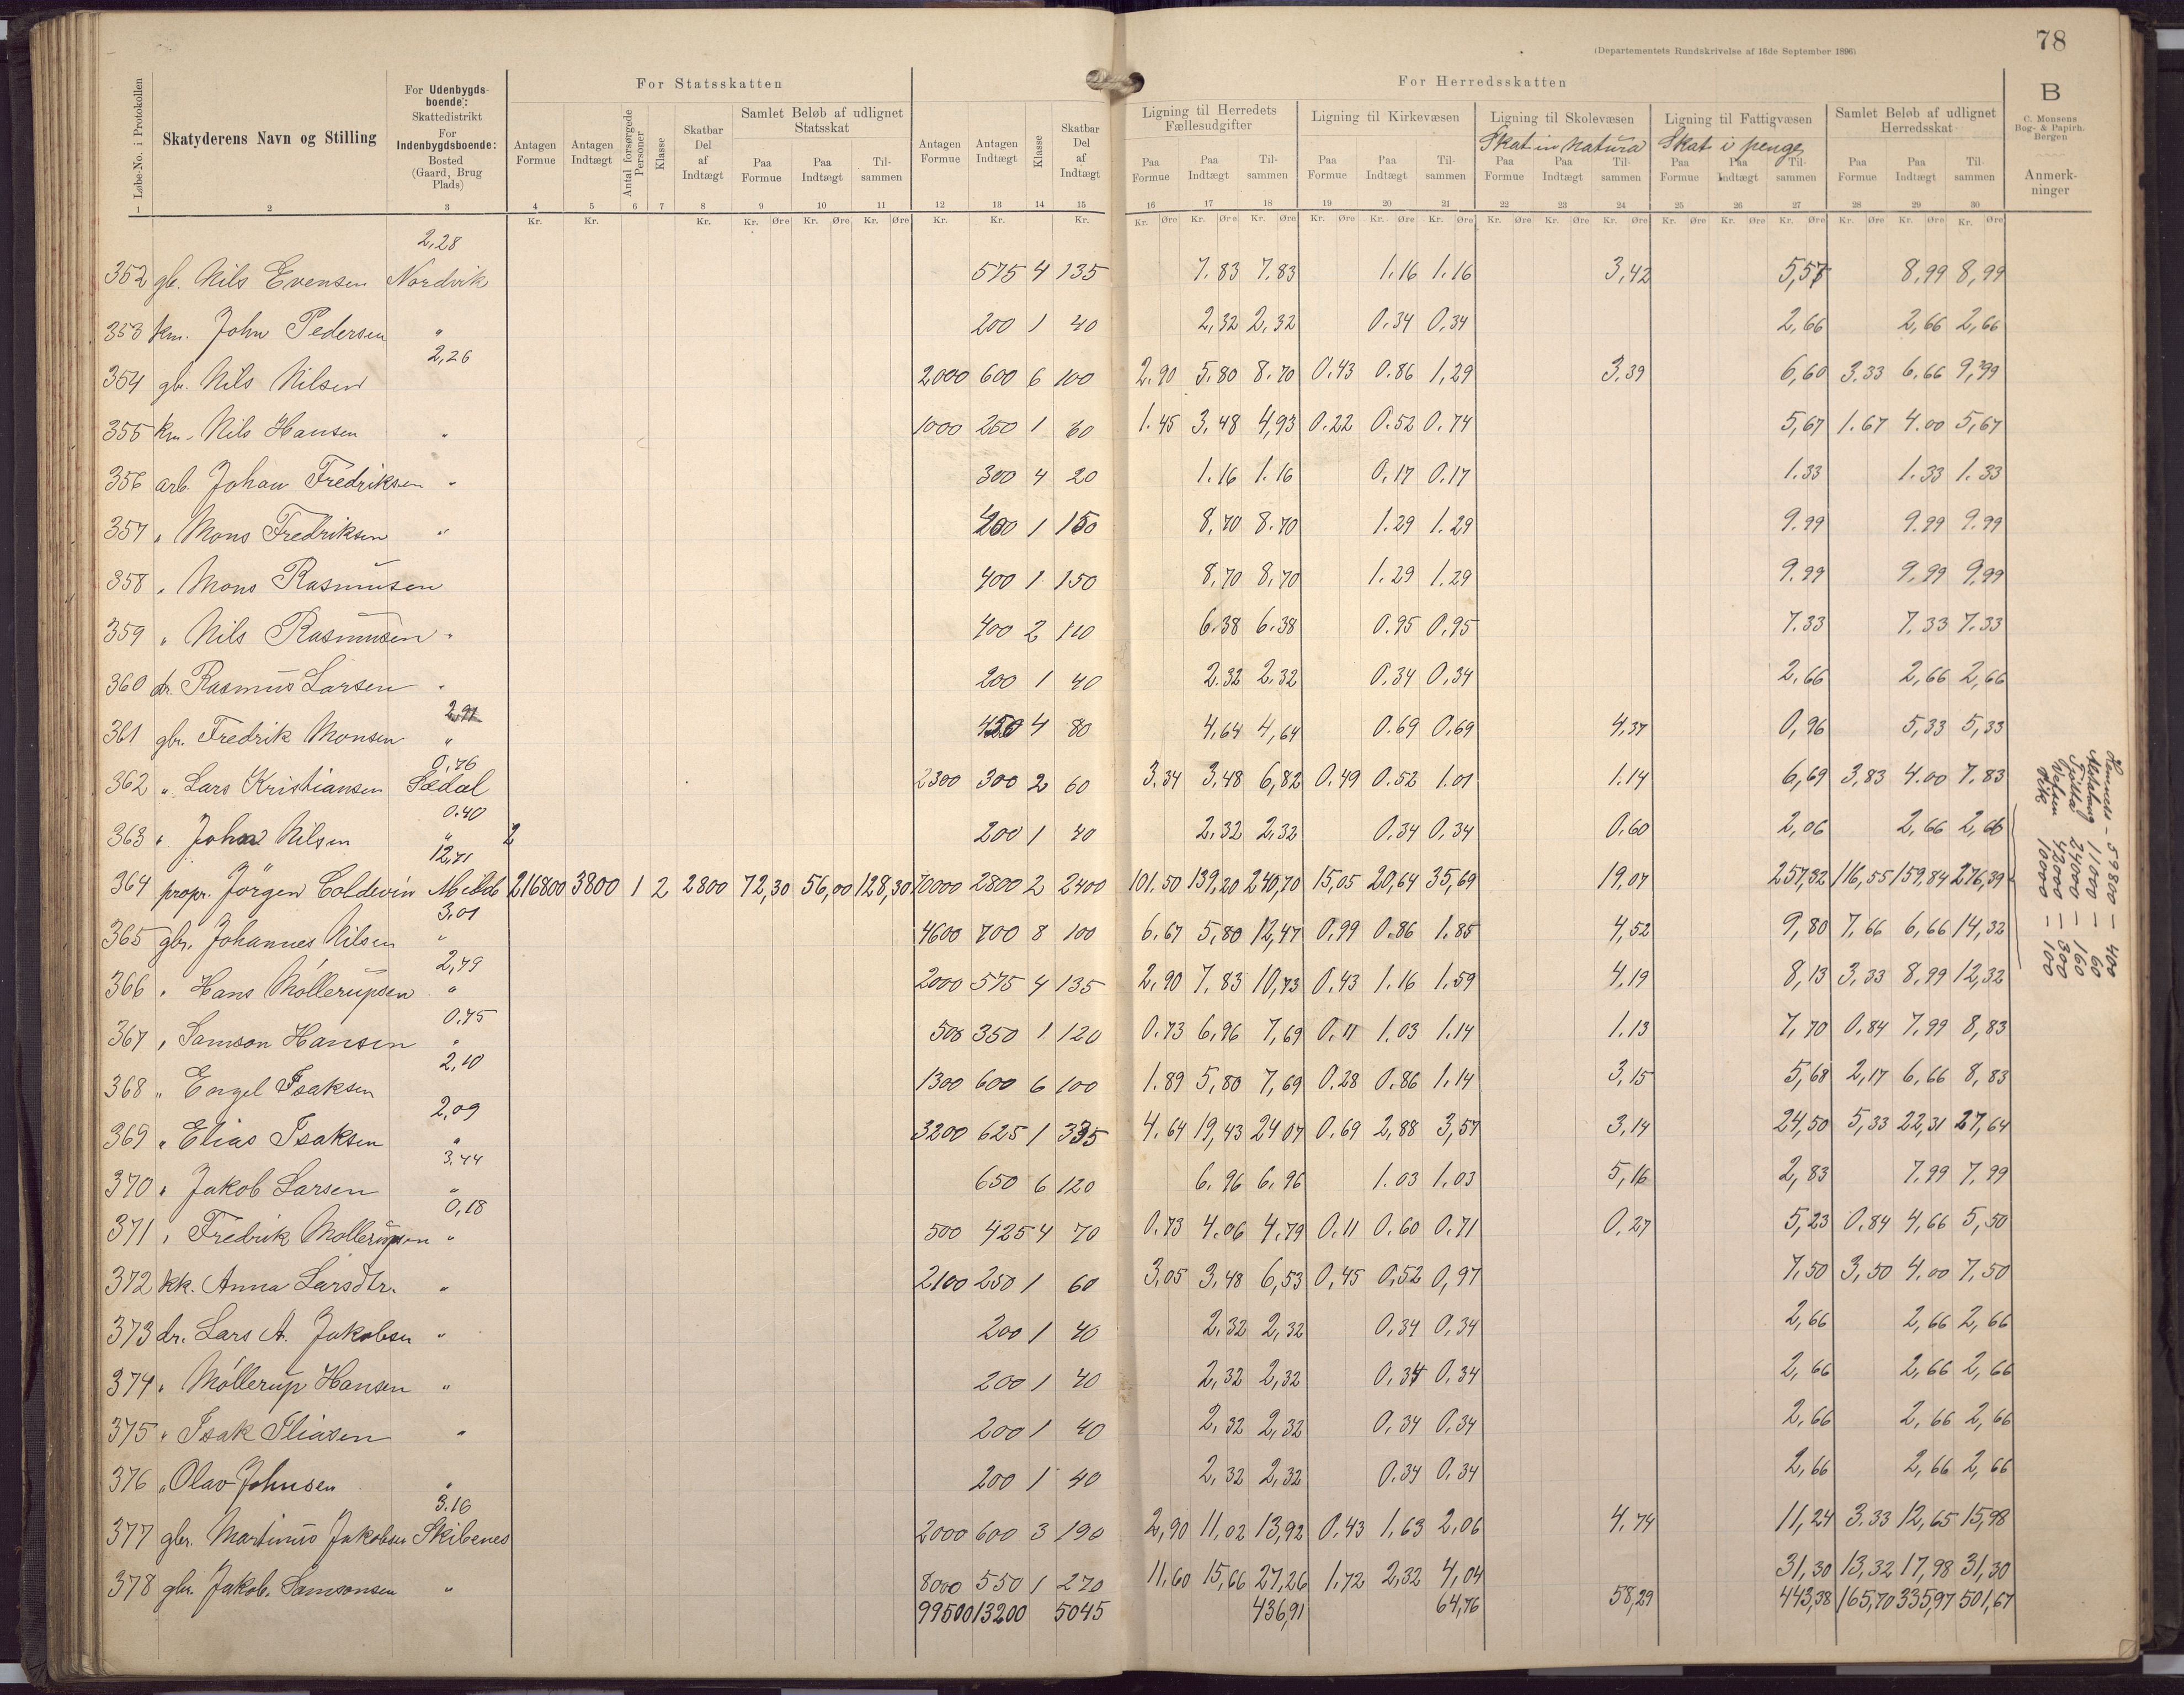 78
(Departementets Rundskrivelse af 16de September 1896)
For Statsskatten
For Herredsskatten
B
C. Monsens
Bog- & Papirh.
Bergen
Løbe-No. i Protokollen
Skatyderens Navn og Stilling
For Udenbygds-
boende:
Skattedistrikt
For
Indenbygdsboende:
Bosted
(Gaard, Brug
Plads)
Antagen Formue
Antagen Indtægt
Antal forsørgede Personer
Klasse
Skatbar Del af Indtægt
Samlet Beløb af udlignet Statsskat
Paa Formue Paa Indtægt Til-sammen
Antagen Formue
Antagen Indtægt
Klasse
Skatbar Del af Indtægt
Ligning til Herredets Fællesudgifter
Paa Formue Paa Indtægt Til-sammen
Ligning til Kirkevæsen
Paa Formue Paa Indtægt Til-sammen
Ligning til Skolevæsen
Skat in natura
Paa Formue Paa Indtægt Til-sammen
Ligning til Fattigvæsen
Skat i penge
Paa Formue Paa Indtægt Til-sammen
Samlet Beløb af udlignet Herredsskat
Paa Formue Paa Indtægt Til-sammen
Anmerk-
ninger
1 2 3 4 5 6 7 8 9 10 11 12 13 14 15 16 17 18 19 20 21 22 23 24 25 26 27 28 29 30
Kr. Kr. Kr. Kr. Øre Kr. Øre Kr. Øre Kr. Kr. Kr. Kr. Øre Kr. Øre Kr. Øre Kr. Øre Kr. Øre Kr. Øre Kr. Øre Kr. Øre Kr. Øre Kr. Øre Kr. Øre Kr. Øre Kr. Øre Kr. Øre Kr. Øre
2,28
352 gbr. Nils Evensen Nordvik 575 4 135 7.83 7.83 1.16 1.16 3,42 5,57 8,99 8,99
353 km. John Pedersen " 200 1 40 2,32 2,32 0.34 0,34 2,66 2,66 2,66
2,26
354 gbr. Nils Nilsen 2000 600 6 100 2.90 5.80 8.70 0.43 0.86 1,29 3.39 6,60 3.33 6.66 9,99
355 km. Nils Hansen " 1000 250 1 60 1.45 3,48 4,93 0.22 0.52 0.74 5,67 1.67 4.00 5,67
356 arb. Johan Fredriksen " 300 4 20 1.16 1.16 0.17 0.17 1.33 1.33 1.33
357 " Mons Fredriksen " 400 1 150 8,70 8.70 1.29 1.29 9.99 9.99 9.99
358 " Mons Rasmusen 400 1 150 8,70 8,70 1.29 1.29 9.99 9,99 9,99
359 " Nils Rasmusen " 400 2 110 6.38 6.38 0.95 0.95 7.33 7.33 7.33
360 dr. Rasmus Larsen " 200 1 40 2.32 2.32 0.34 0.34 2,66 2,66 2,66
2,91
361 gbr. Fredrik Monsen " 450 4 80 4,64 4,64 0.69 0.69 4,37 0,96 5,33 5,33
0,76
362 " Lars Kristiansen Sædal 2300 300 2 60 3.34 3,48 6,82 0.49 0.52 1.01 1.14 6,69 3,83 4.00 7.83
0.40
363 " Johan Nilsen " 2 200 1 40 2,32 2,32 0.34 0.34 0,60 2,06 2,66 2,66
12,71
364 propr. Jörgen Coldevin 216800 3800 1 2 2800 72,30 56,00 128,30 70000 2800 2 2400 101.50 139,20 240,70 15,05 20,64 35,69 19,07 257,32 116,55 159,84 276,39
3,01
365 gbr. Johannes Nilsen " 4600 700 8 100 6.67 5,80 12,47 0,99 0.86 1.85 4,52 9,80 7,66 6,66 14,32
2,79
366 " Hans Möllerupsen " 2000 575 4 135 2,90 7.83 10,73 0,43 1.16 1.59 4,19 8,13 3,33 8,99 12,32
0,75
367 " Samson Hansen " 500 350 1 120 0.73 6,96 7,69 0,11 1.03 1.14 1.13 7,70 0,84 7,99 8,83
2,10
368 " Engel Isaksen 1300 600 6 100 1.89 5,80 7,69 0.28 0.86 1,14 3,15 5,68 2,17 6,66 8,83
2,09
369 " Elias Isaksen " 3200 625 1 335 4.64 19,43 24 07 0.69 2,88 3,57 3,14 24,50 5,33 22,31 27,64
3,44
370 " Jakob Larsen " 650 6 120 6.96 6.96 1.03 1.03 5,16 2,83 7.99 7,99
0,18
371 " Fredrik Mollerupsen " 500 425 4 70 0.73 4.06 4.79 0.11 0.60 0.71 0.27 5,23 0,84 4,66 5,50
372 kk. Anna Larsdtr. " 2100 250 1 60 3,05 3,48 6,53 0,45 0,52 0,97 7,50 3,50 4.00 7,50
373 dr. Lars A. Jakobsen " 200 1 40 2,32 2,32 0,34 0,34 2,66 2,66 2,66
374 " Möllerup Hansen " 200 1 40 2,32 2,32 0.34 0.34 2,66 2,66 2,66
375 " Isak Eliasen " 200 1 40 2,32 2,32 0,34 0,34 2,66 2,66 2,66
376 " Olav Johnsen " 200 1 40 2,32 2,32 0.34 0.34 2,66 2,66 2,66
3.16
377 gbr. Martinus Jakobsen Skibenes 2000 600 3 190 2,90 11,02 13,92 0.43 1.63 2,06 4.74 11,24 3.33 12,65 15,98
378 gbr. Jakob Samsonsen " 8000 550 1 270 11.60 15,66 27,26 1.72 2,32 4,04 31,30 13,32 17,98 31,30
99500 13200 5045 436,91 64,76 58,29 443,38 165,70 335,97 501,67
Hemnes - 59800 - 400
11000 - 60
24000 - 160
Vefsen 42000 - 300
10000 - 100